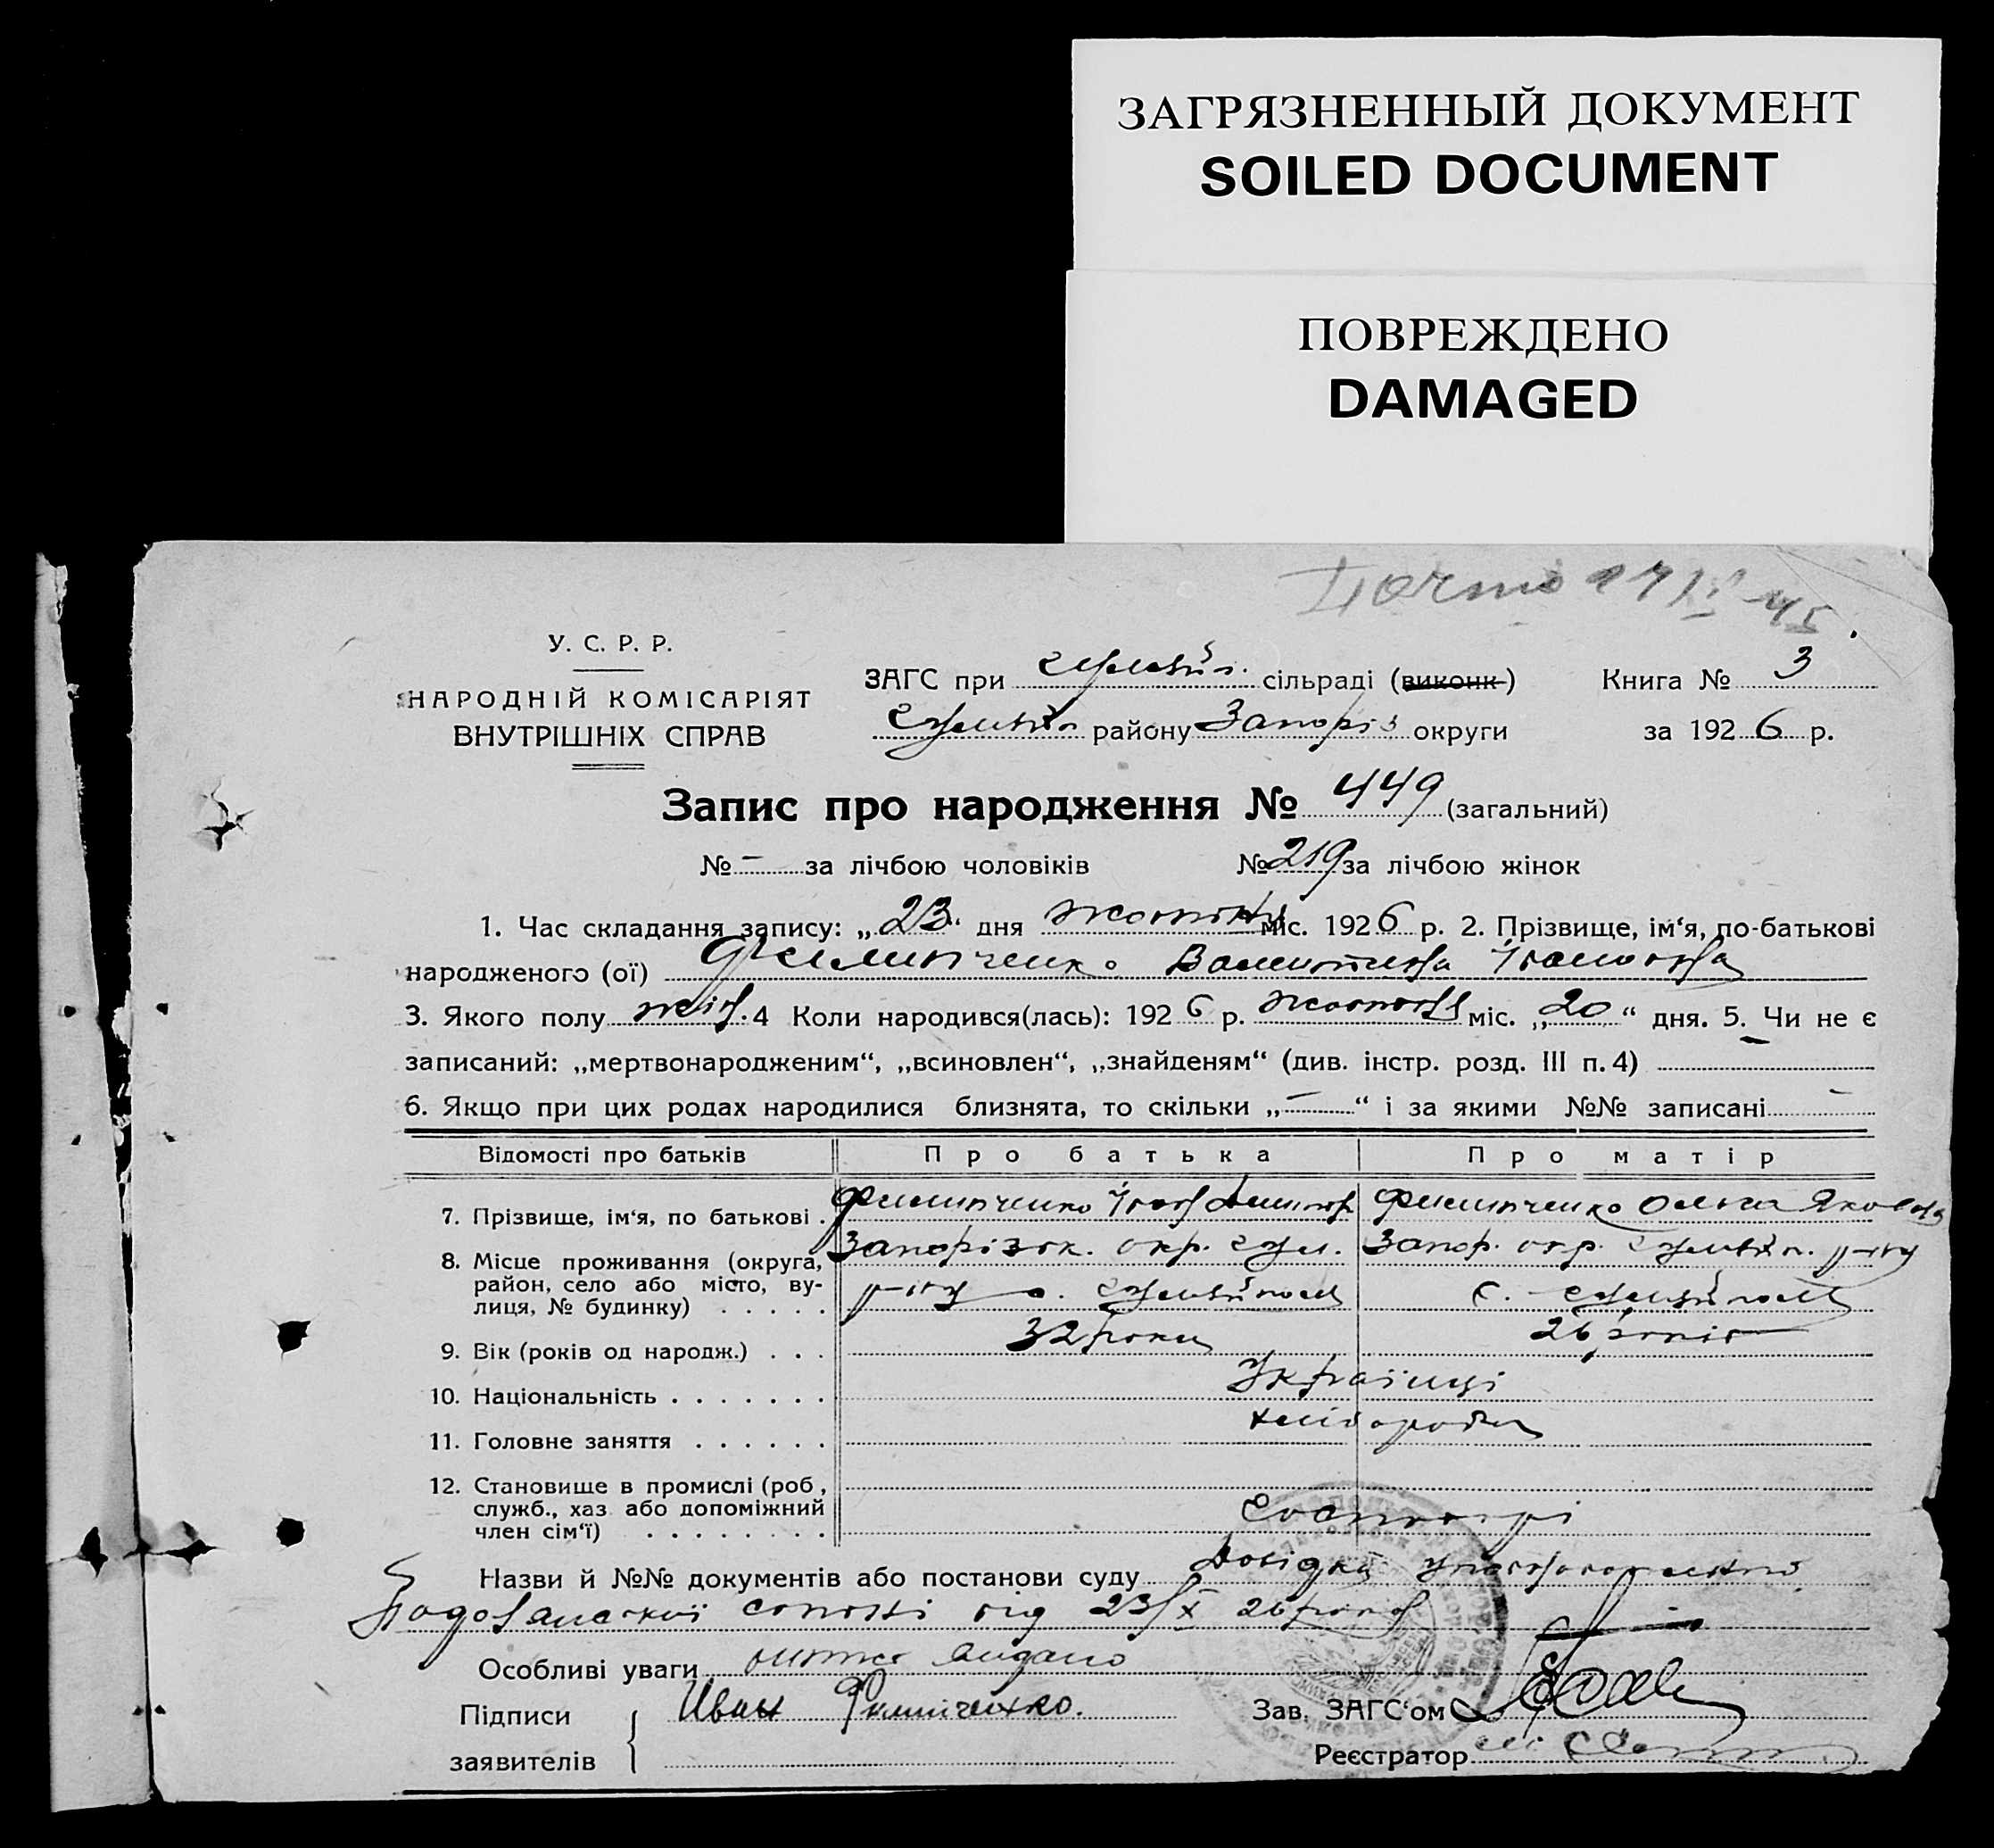 ЗАГРЯЗНЕННЫЙ ДОКУМЕНТ
SOILED DOCUMENT
ПОВРЕЖДЕНО
DAMAGED
У. С. Р. Р.
НАРОДНІЙ КОМІСАРІЯТ
ВНУТРІШНІХ СПРАВ
ЗАГС при сільраді (виконк) Книга № 3
району Запоріз округи за 1926 р.
Запис про народження № 449 (загальний)
№ – за лічбою чоловіків № 219 за лічбою жінок
1. Час складання запису: „23“ дня жовтня міс. 1926 р. 2. Прізвище, ім‘я, по-батькові
народженого (ої) Филипченко Валентина Іванова
3. Якого полу жін. 4 Коли народився(лась): 1926 р. жовтня міс. „20“ дня. 5. Чи не є
записаний: „мертвонародженим“, „всиновлен“, „знайденям“ (див. інстр. розд. III п. 4) –
6. Якщо при цих родах народилися близнята, то скільки „–“ і за якими №№ записані –
Відомості про батьків Про батька Про матір
7. Прізвище, ім‘я, по батькові . Филипченко Іван Филипченко Ольга Яковова
8. Місце проживання (округа, Запорізьк. окр. Запор. окр. р-ну
район, село або місто, ву- р-ну с. с.
лиця, № будинку) . . . . .
9. Вік (років од народж.) . . . 32 роки 26 років
10. Національність . . . . . . . Українці
11. Головне заняття . . . . . . хлібороби
12. Становище в промислі (роб,
служб., хаз або допоміжний
член сім‘ї) . . . . . . . . Господарі
Назви й №№ документів або постанови суду Довідка
від 23/X 26 року
Особливі уваги витяг видано
Підписи Иван Филипченко. Зав. ЗАГС‘ом
заявителів Реєстратор